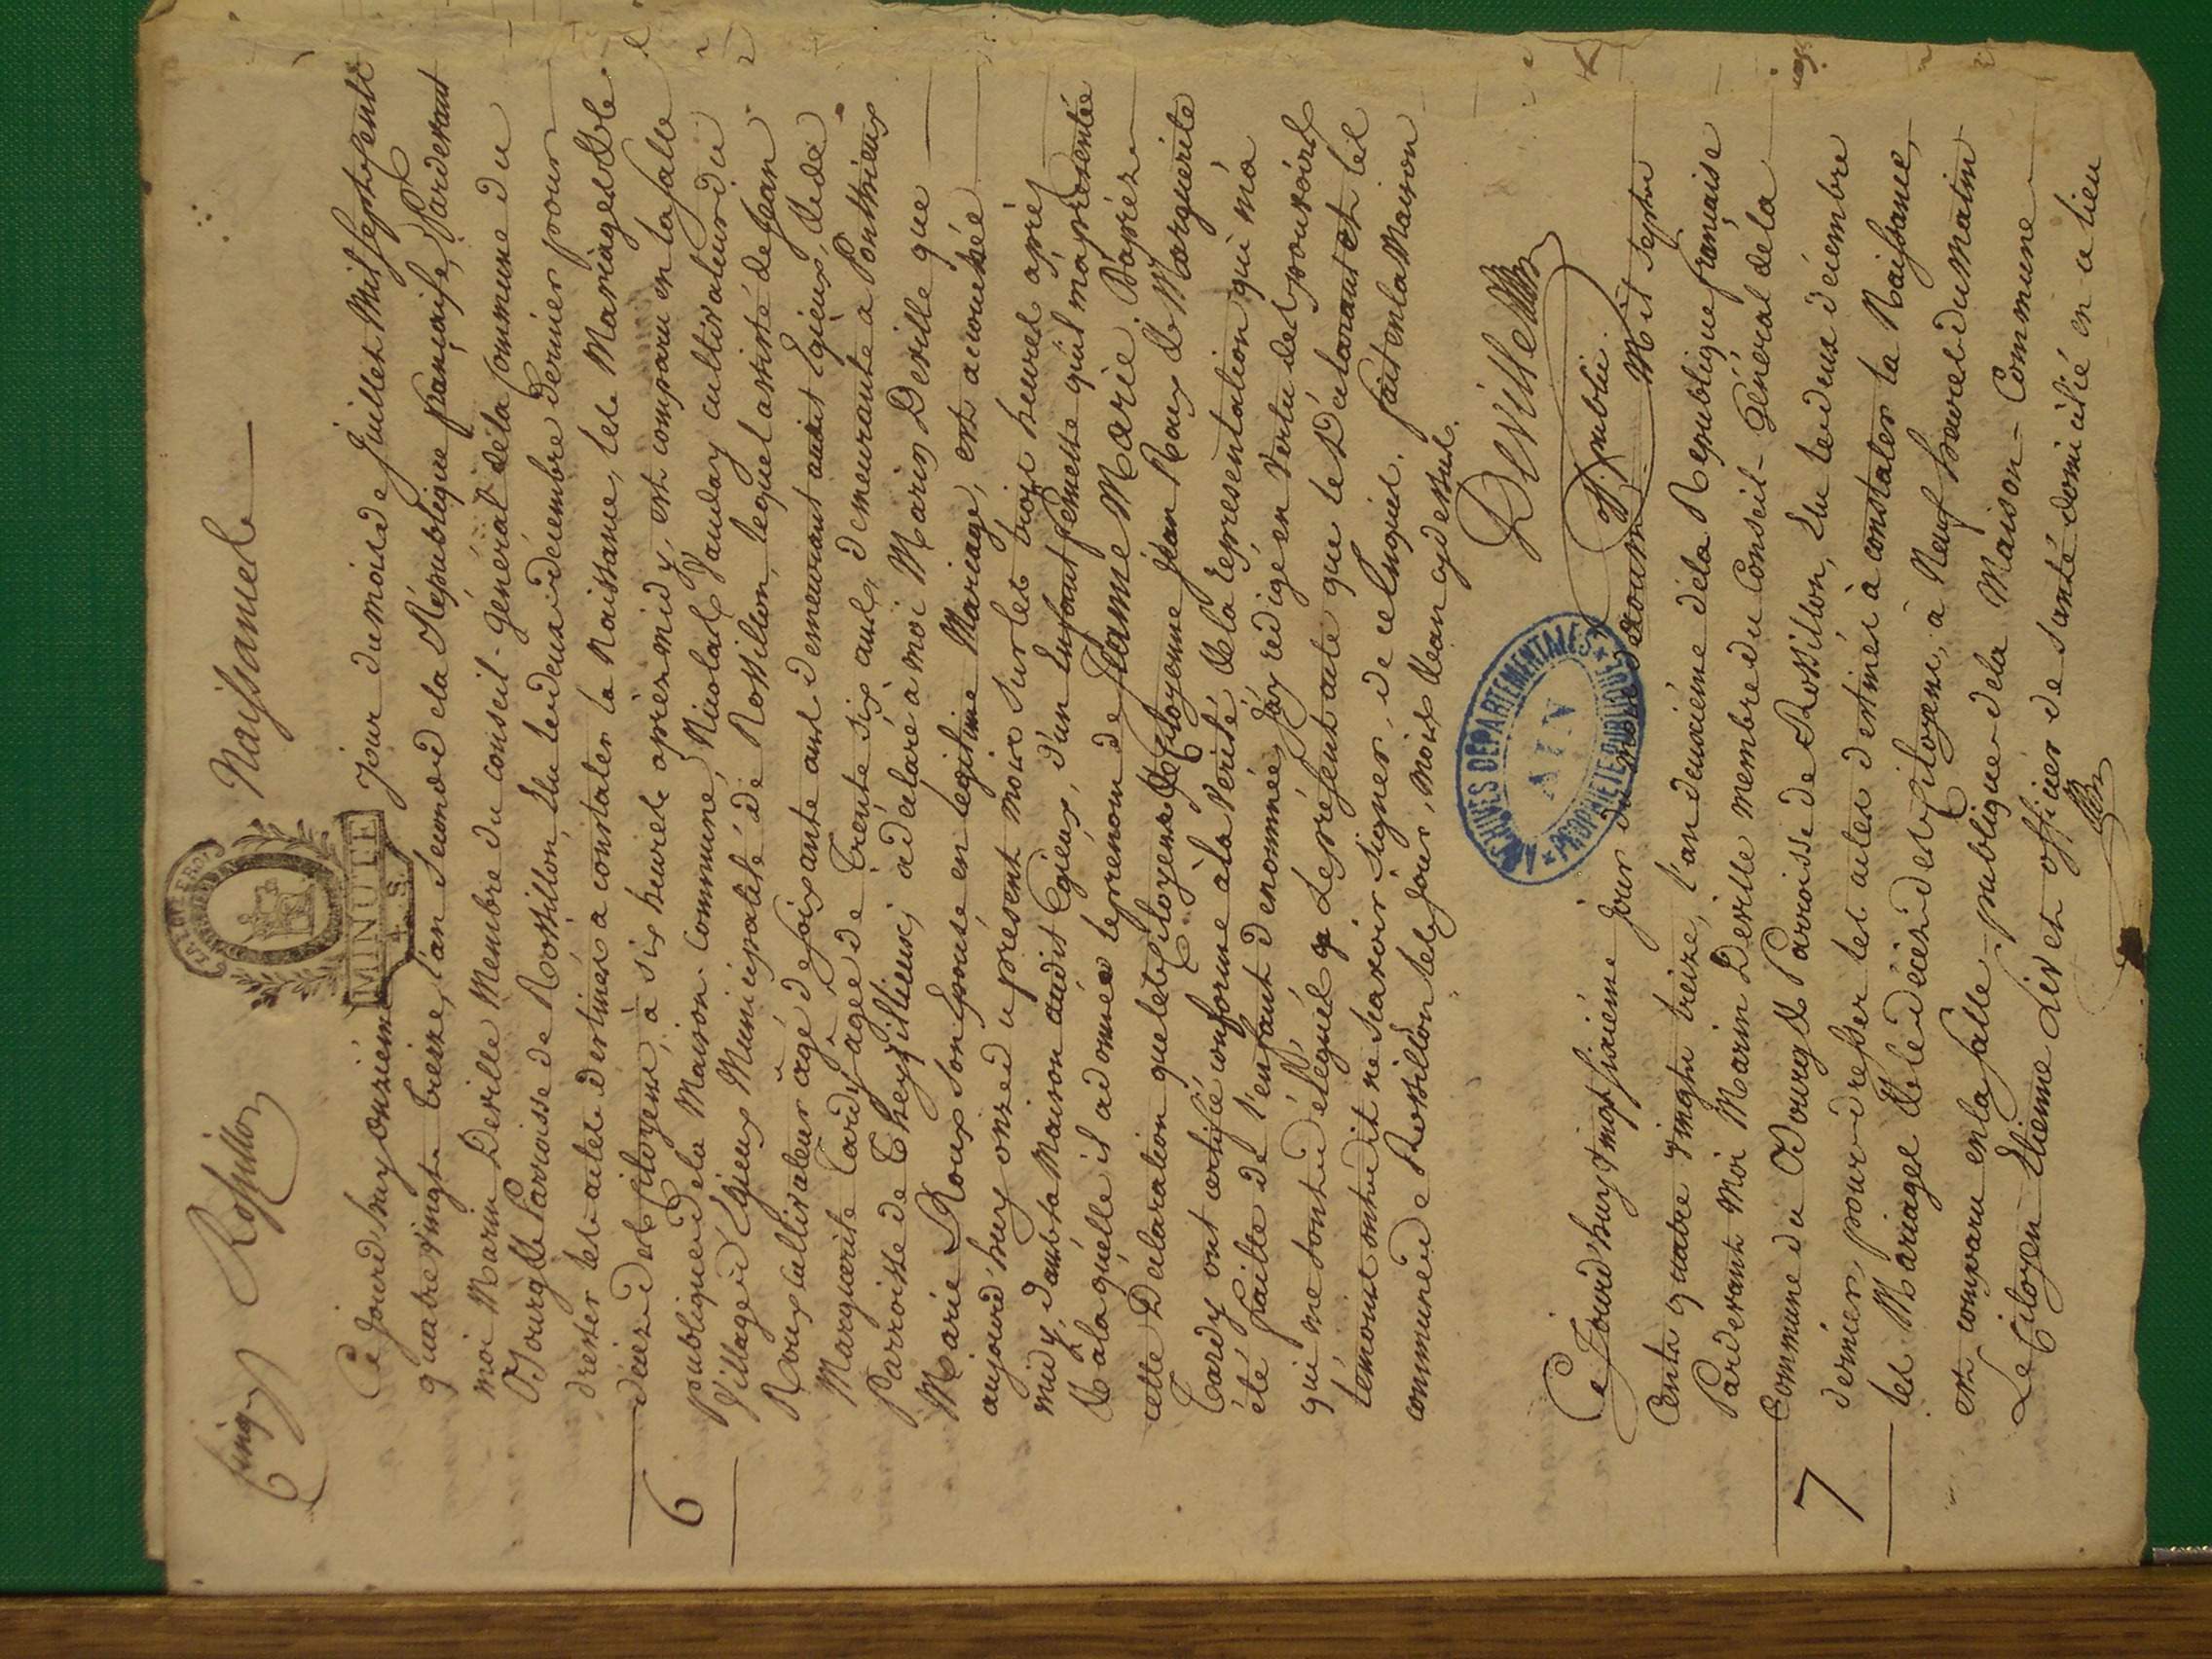 Cinq Rossillon Naissances
MINUTE
4. S.
Ce Jourd'huy onzieme jour du mois de Juillet mil sept cent
quatre vingt treize, l'an second de la République française, Pardevant
moi Marin Deville Membre du conseil-général de la commune du
Bourg & Parroisse de Rossillon, élu le deux décembre dernier pour
dresser les actes destinés a constater la Naissance, les Mariages & le
décès des citoyens, à six heures après midy, est comparu en la salle
publique de la Maison commune, Nicolas Jauday cultivateur du
Village d'Egieux Municipalité de Rossillon, lequel assisté de Jean
Roux cultivateur âgé de soixante ans demeurant audit Egieux, & de
Marguerite Tardy agée de trente six ans, demeurante a Ponthieux
Parroisse de Cheyssilieux, a déclaré à moi Marin Deville que
Marie Roux son Epouse en légitime Mariage, est accouchée
aujourd'huy onze du présent mois sur les trois heures après
midy, dans sa Maison audit Egieux, d'un Enfant femelle qu'il m'a présentée
& à laquelle il a donné le prénom de Jeanne Marie D'après
cette Déclaration que les Citoyens & Citoyenne Jean Roux & Marguerite
Tardy ont certifié conforme à la Vérité & la représentation qui m'a
été faitte de l'enfant dénommée, J'ay rédigé en vertu des pouvoirs
qui me sont délégués le présent acte que les Déclarant et les
témoins ont dit ne scavoir signer, de ce Enquis. fait en la Maison
commune de Rossillon les jour, mois & an cy dessus.
Deville
off. public.
ARCHIVES DÉPARTEMENTALES
AIN
PROPRIÉTÉ PUBLIQUE
6
Ce Jourd'huy vingt sixième jour du mois d'aoust Mil sept
Cents quatre vingts treize, l'an deuxième de la République française
Pardevant Moi Marin Deville membre du Conseil-Général de la
Commune du Bourg & Parroisse de Rossillon, élu le deux décembre
dernier, pour dresser les actes destinés à constater la Naissance,
les Mariages & le décès des Citoyens, à Neuf heures du matin
est comparu en la salle publique de la Maison-Commune
Le Citoyen Etienne Livet officier de santé domicilié en ce lieu
7